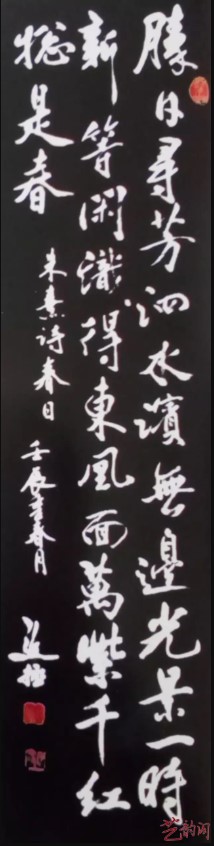 勝日尋芳泗水濱無邊光景一時
新等閑識得東風面萬紫千紅
揔是春
朱熹詩春日
壬辰年春月
艺韵阁